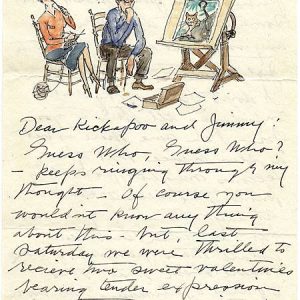 Dear Kickapoo and Jimmy!
Guess Who, Guess Who?
– keeps ringing through my
thought – Of course you
wouldn't know any thing
about this – but, last
Saturday we were thrilled to
recieve two sweet valentines
bearing tender expression